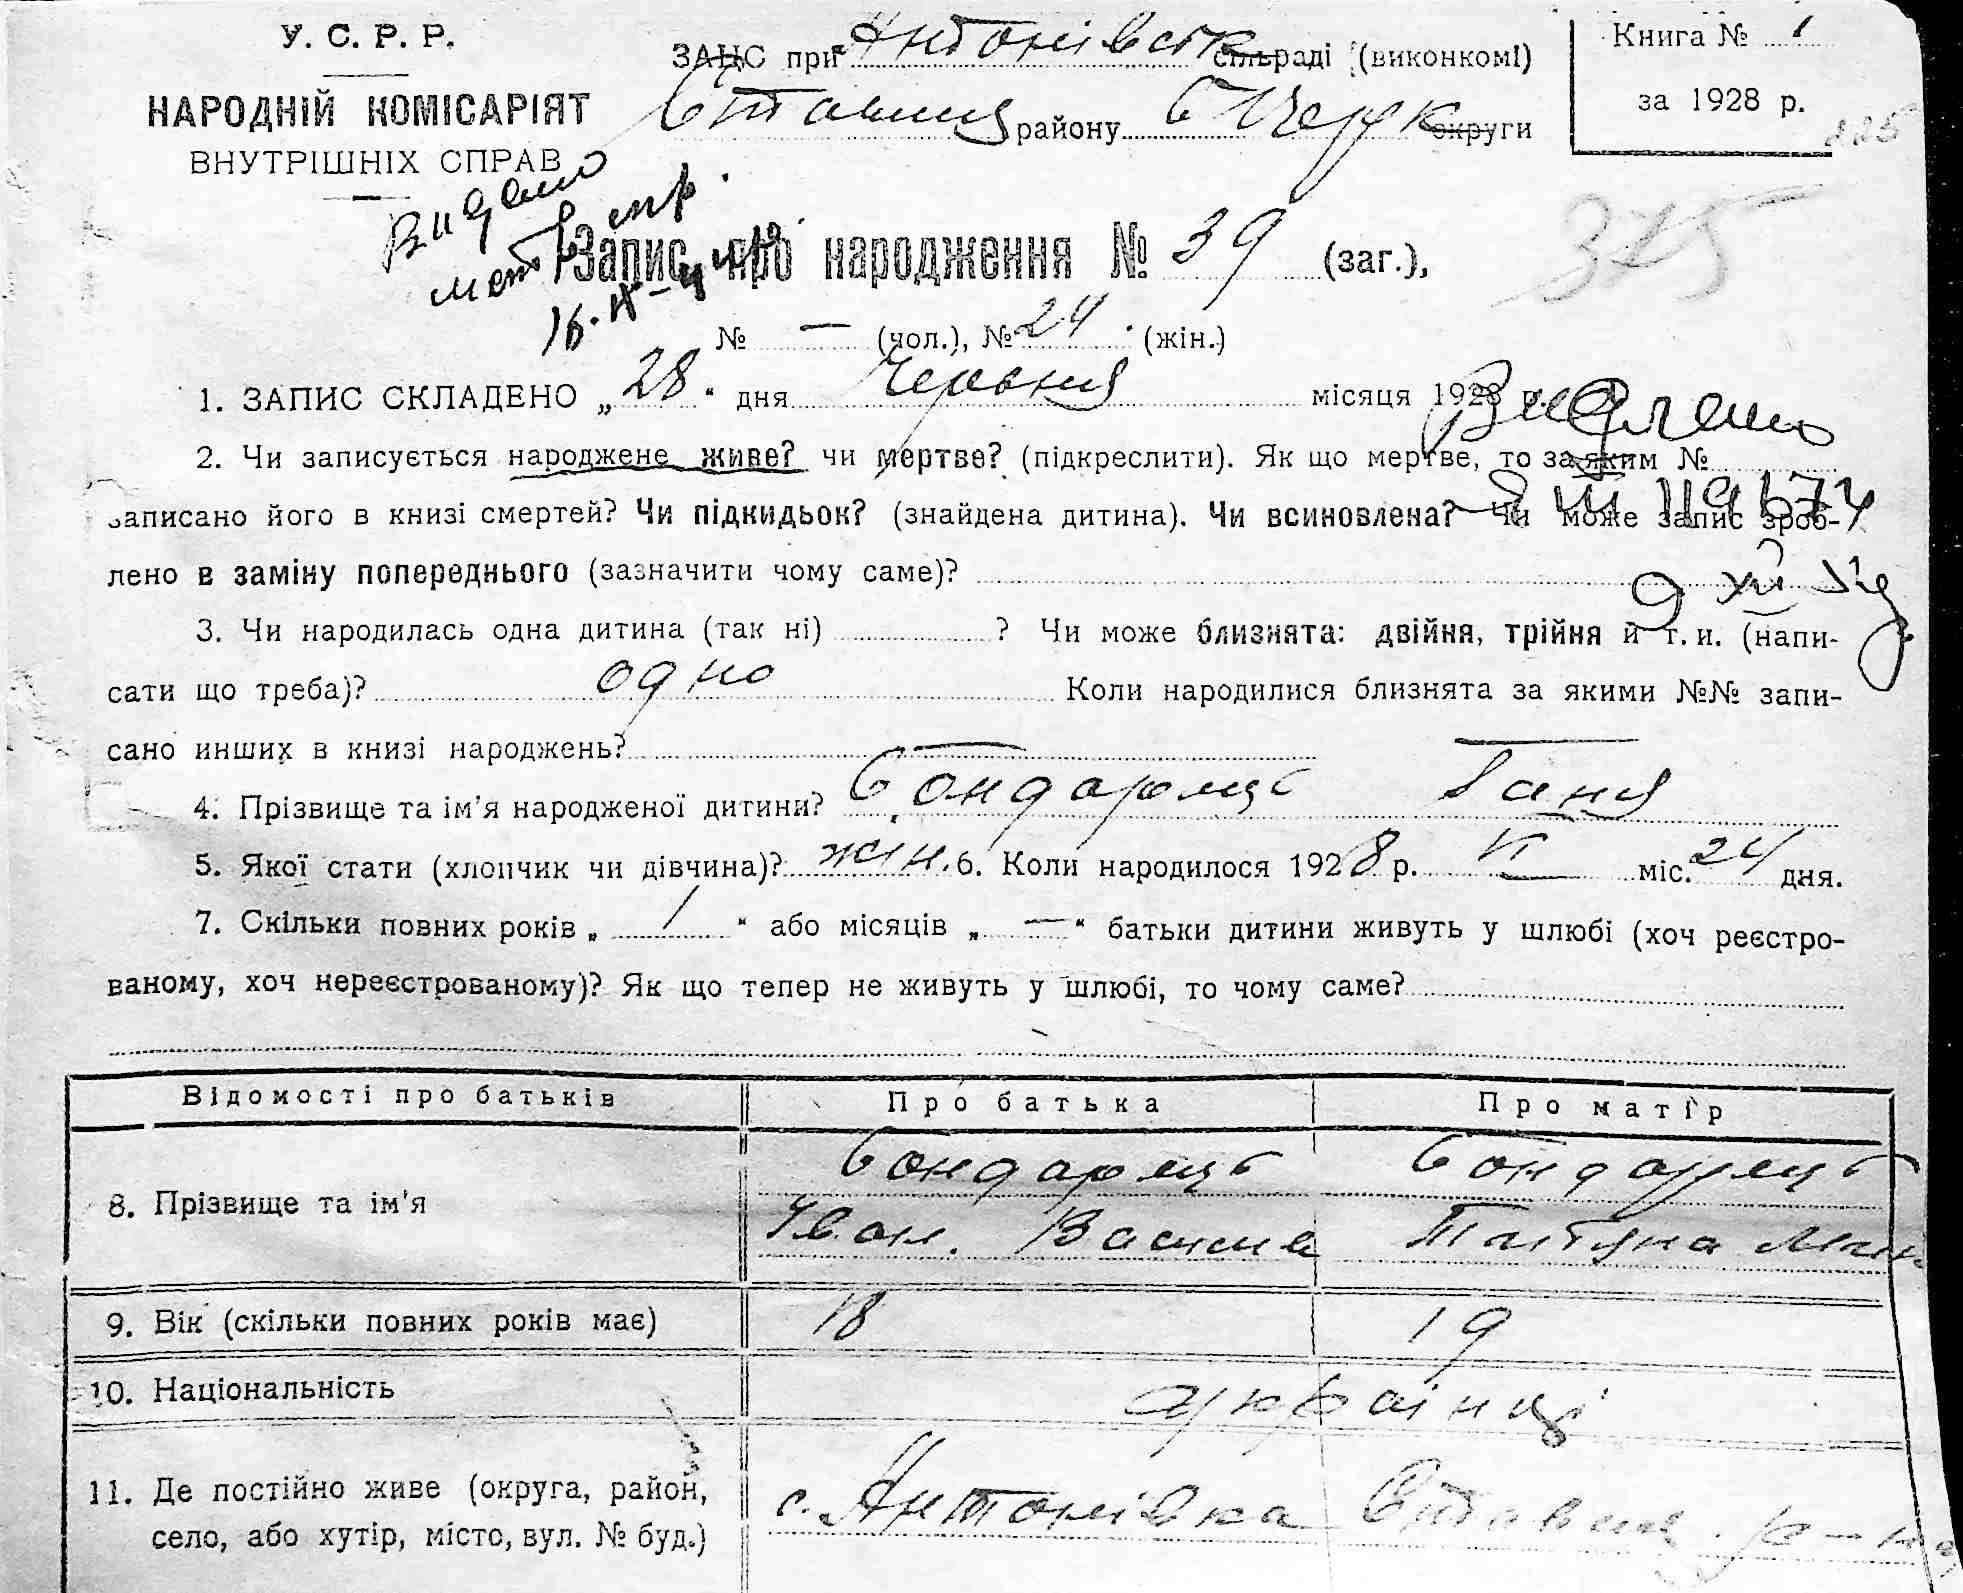 У. С. Р. Р.
НАРОДНІЙ КОМІСАРІЯТ
ВНУТРІШНІХ СПРАВ
ЗАЦС при Антонівськ сільраді (виконкомі)
району Б Церк округи
Книга № 1
за 1928 р.
375
Видано
16. IX
Запис про народження № 39 (заг.),
№ — (чол.), № 24 (жін.)
1. ЗАПИС СКЛАДЕНО „28“ дня Червня місяця 1928 р.
2. Чи записується народжене живе? чи мертве? (підкреслити). Як що мертве, то за яким №
записано його в книзі смертей? Чи підкидьок? (знайдена дитина). Чи всиновлена? Чи може запис зроб-
лено в заміну попереднього (зазначити чому саме)?
3. Чи народилась одна дитина (так ні) ? Чи може близнята: двійня, трійня й т. и. (напи-
сати що треба)? одно Коли народилися близнята за якими №№ запи-
сано инших в книзі народжень? —
4. Прізвище та ім'я народженої дитини? Бондарець Ганя
5. Якої стати (хлопчик чи дівчина)? жін. 6. Коли народилося 1928 р. VI міс. 24 дня.
7. Скільки повних років „ 1 “ або місяців „ — “ батьки дитини живуть у шлюбі (хоч реєстро-
ваному, хоч нереєстрованому)? Як що тепер не живуть у шлюбі, то чому саме?
Відомості про батьків Про батька Про матір
8. Прізвище та ім'я Бондарець Бондарець
Іван. Васил Татяна
9. Вік (скільки повних років має) 18 19
10. Національність українці
11. Де постійно живе (округа, район,
село, або хутір, місто, вул. № буд.)
с. Антонівка Ставищ. р-на